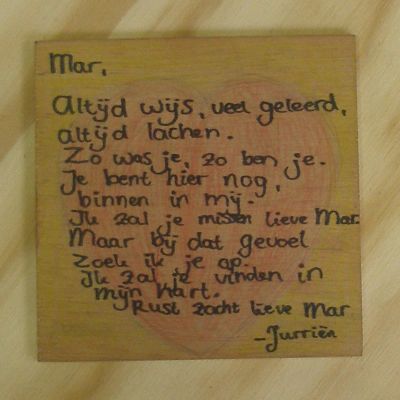 Mar,
Altijd wijs, veel geleerd,
altijd lachen.
Zo was je, zo ben je.
Je bent hier nog,
binnen in mij.
Ik zal je missen lieve Mar.
Maar bij dat gevoel
Zoek ik je op.
Ik zal je vinden in
mijn hart.
Rust zacht lieve Mar
-Jurriën